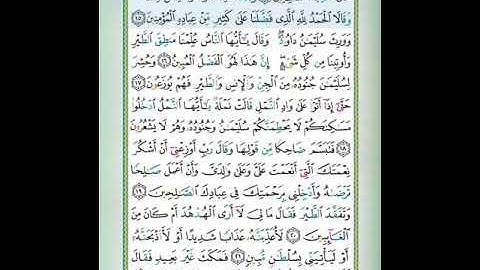 وَقَالَا ٱلْحَمْدُ لِلَّهِ ٱلَّذِى فَضَّلَنَا عَلَىٰ كَثِيرٍ مِّنْ عِبَادِهِ ٱلْمُؤْمِنِينَ ١٥
وَوَرِثَ سُلَيْمَٰنُ دَاوُۥدَ وَقَالَ يَٰٓأَيُّهَا ٱلنَّاسُ عُلِّمْنَا مَنطِقَ ٱلطَّيْرِ
وَأُوتِينَا مِن كُلِّ شَىْءٍ إِنَّ هَٰذَا لَهُوَ ٱلْفَضْلُ ٱلْمُبِينُ ١٦ وَحُشِرَ
لِسُلَيْمَٰنَ جُنُودُهُۥ مِنَ ٱلْجِنِّ وَٱلْإِنسِ وَٱلطَّيْرِ فَهُمْ يُوزَعُونَ ١٧
حَتَّىٰٓ إِذَآ أَتَوْا۟ عَلَىٰ وَادِ ٱلنَّمْلِ قَالَتْ نَمْلَةٌ يَٰٓأَيُّهَا ٱلنَّمْلُ ٱدْخُلُوا۟
مَسَٰكِنَكُمْ لَا يَحْطِمَنَّكُمْ سُلَيْمَٰنُ وَجُنُودُهُۥ وَهُمْ لَا يَشْعُرُونَ
١٨ فَتَبَسَّمَ ضَاحِكًا مِّن قَوْلِهَا وَقَالَ رَبِّ أَوْزِعْنِىٓ أَنْ أَشْكُرَ
نِعْمَتَكَ ٱلَّتِىٓ أَنْعَمْتَ عَلَىَّ وَعَلَىٰ وَٰلِدَىَّ وَأَنْ أَعْمَلَ صَٰلِحًا
تَرْضَىٰهُ وَأَدْخِلْنِى بِرَحْمَتِكَ فِى عِبَادِكَ ٱلصَّٰلِحِينَ ١٩
وَتَفَقَّدَ ٱلطَّيْرَ فَقَالَ مَا لِىَ لَآ أَرَى ٱلْهُدْهُدَ أَمْ كَانَ مِنَ
ٱلْغَآئِبِينَ ٢٠ لَأُعَذِّبَنَّهُۥ عَذَابًا شَدِيدًا أَوْ لَأَا۟ذْبَحَنَّهُۥٓ
أَوْ لَيَأْتِيَنِّى بِسُلْطَٰنٍ مُّبِينٍ ٢١ فَمَكَثَ غَيْرَ بَعِيدٍ فَقَالَ